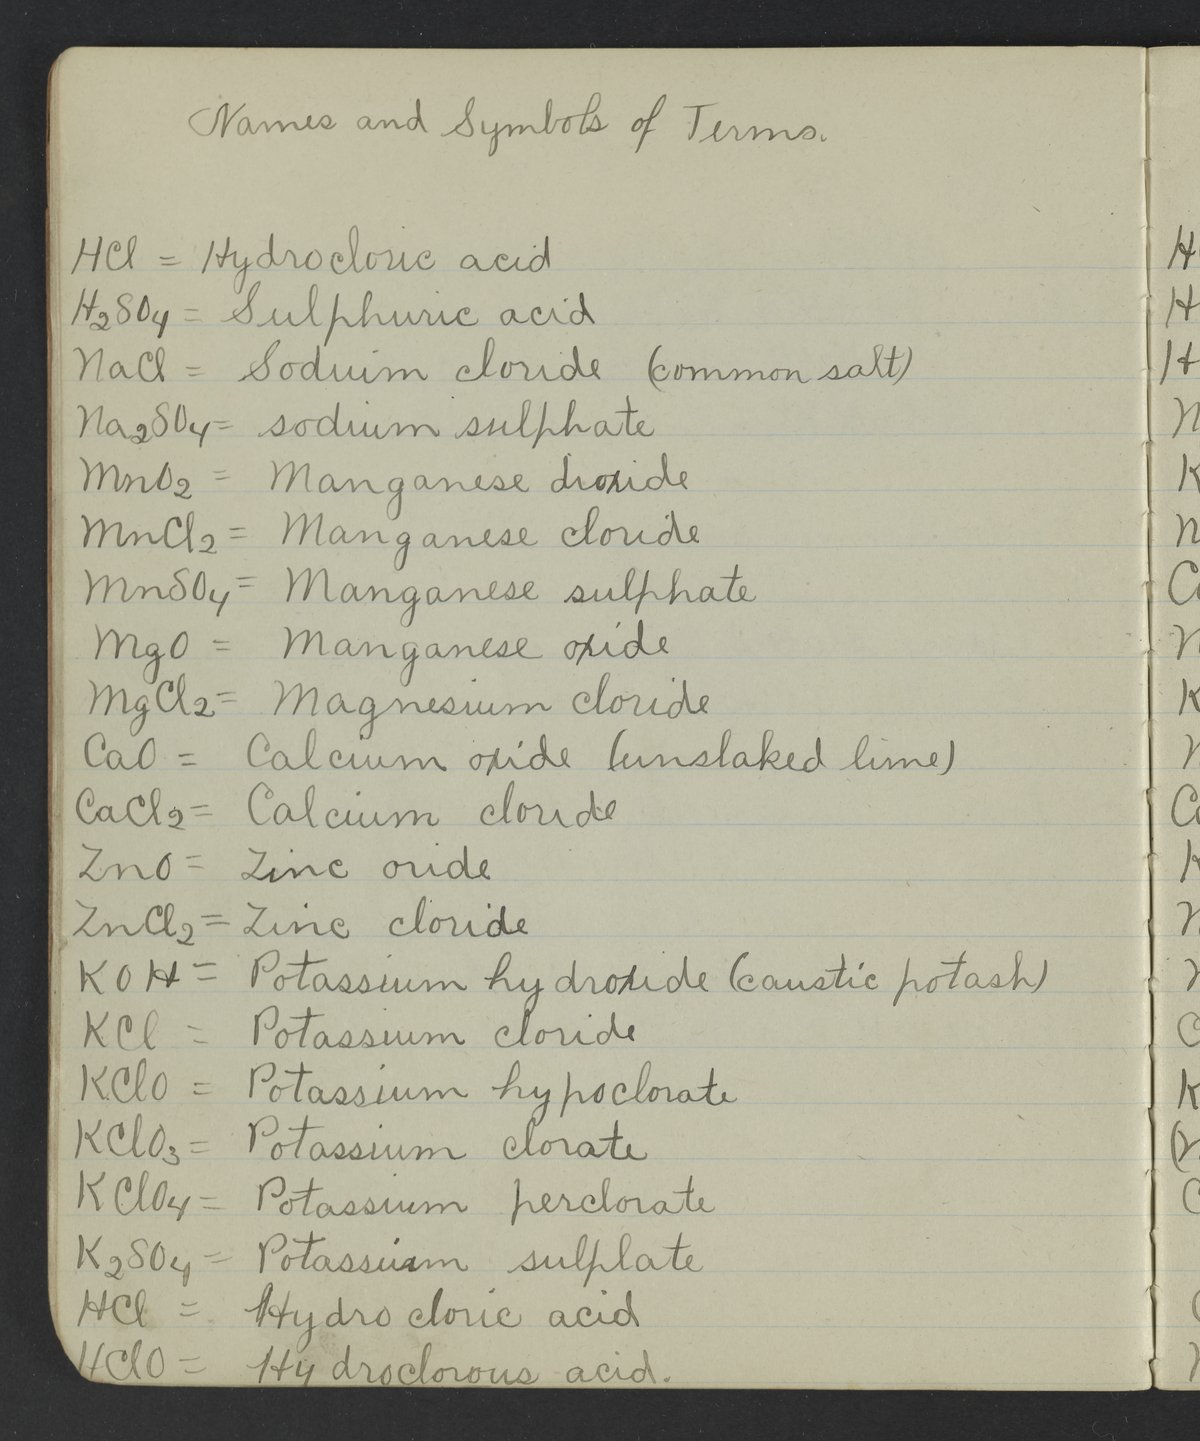 Names and Symbols of Terms.
HCl = Hydrocloric acid
H₂SO₄ = Sulphuric acid
NaCl = Sodium cloride (common salt)
Na₂SO₄ = sodium sulphate
MnO₂ = Manganese dioxide
MnCl₂ = Manganese cloride
MnSO₄ = Manganese sulphate
MgO = Manganese oxide
MgCl₂ = Magnesium cloride
CaO = Calcium oxide (unslaked lime)
CaCl₂ = Calcium cloride
ZnO = Zinc oxide
ZnCl₂ = Zinc cloride
KOH = Potassium hydroxide (caustic potash)
KCl = Potassium cloride
KClO = Potassium hypoclorate
KClO₃ = Potassium clorate
KClO₄ = Potassium perclorate
K₂SO₄ = Potassium sulplate
HCl = Hydrocloric acid
HClO = Hydroclorous acid.